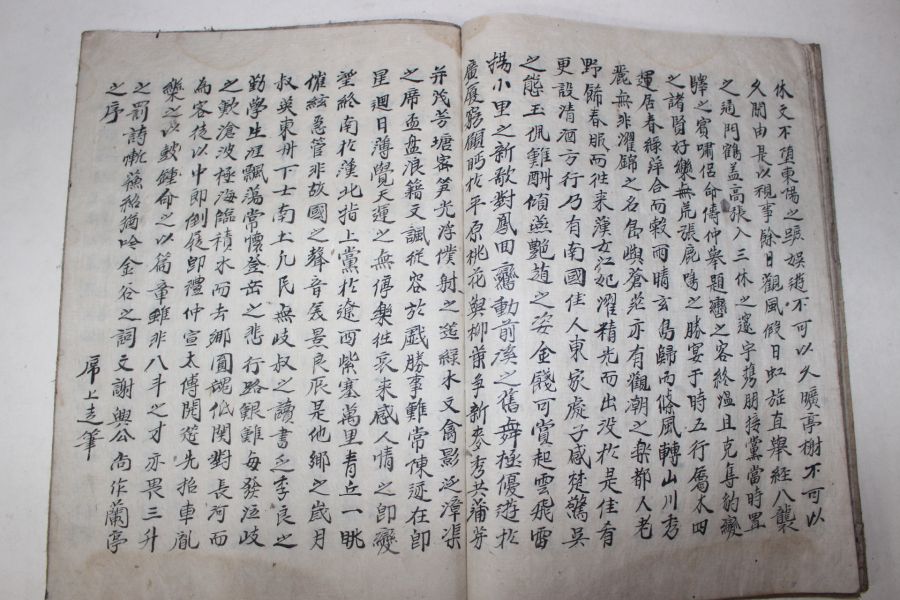 休文不預東陽之蹑娛遊不可以久曠亭榭不可以
久閒由是以視事餘日觀風假日虹旌直舉經八襲
之通門鶴盖高張入三休之邃宇携朋接黨當時置
驛之賓嘯侶命儔仲舉題輿之客終溫且克尊豹變
之諸賢好樂無荒張鹿鳴之勝宴于時五行屬太四
運居春綠萍合而穀雨晴玄鳥歸而條風轉山川秀
麗無非濯錦之名島嶼蒼茫亦有觀潮之樂都人老
野飾春服而往來漢女江妃濯精光而出没於是佳肴
更設淸酒方行乃有南國佳人東家處子感梵驚吳
之態玉佩難酬傾燕艶趙之姿金錢可賞起雲飛雪
揚小里之新歌對鳳回鸞動前溪之舊舞極優遊於
廣厦窮顧眄於平原桃花與柳葉爭新麥秀共蒲芽
并茂芳塘密笋光浮僕射之莚綠水文禽影泛漳渠
之席盃盤浪籍文諷從容於戱勝事難常陳迹在卽
星週日薄覺天運之無停樂往哀來感人情之卽變
望終南於漢北指上黨於遼西紫塞萬里靑丘一眺
催絃急管非故國之聲音矣景良辰是他鄕之歲月
叔英東州下士南土凡民無岐叔之讀書乏李良之
勤學生涯飄蕩常懷登岳之悲行路艱難每發泣岐
之歎滄波極海臨積水而去鄕圓魄低關對長河而
為客後以中郞倒屣卽禮仲宣太傅開筵先招車胤
樂之以鼓鍾命之以篇章雖非八斗之才亦畏三升
之罰詩慚蘓紹猶吟金谷之詞文謝興公尙作蘭亭
之序
席上走筆